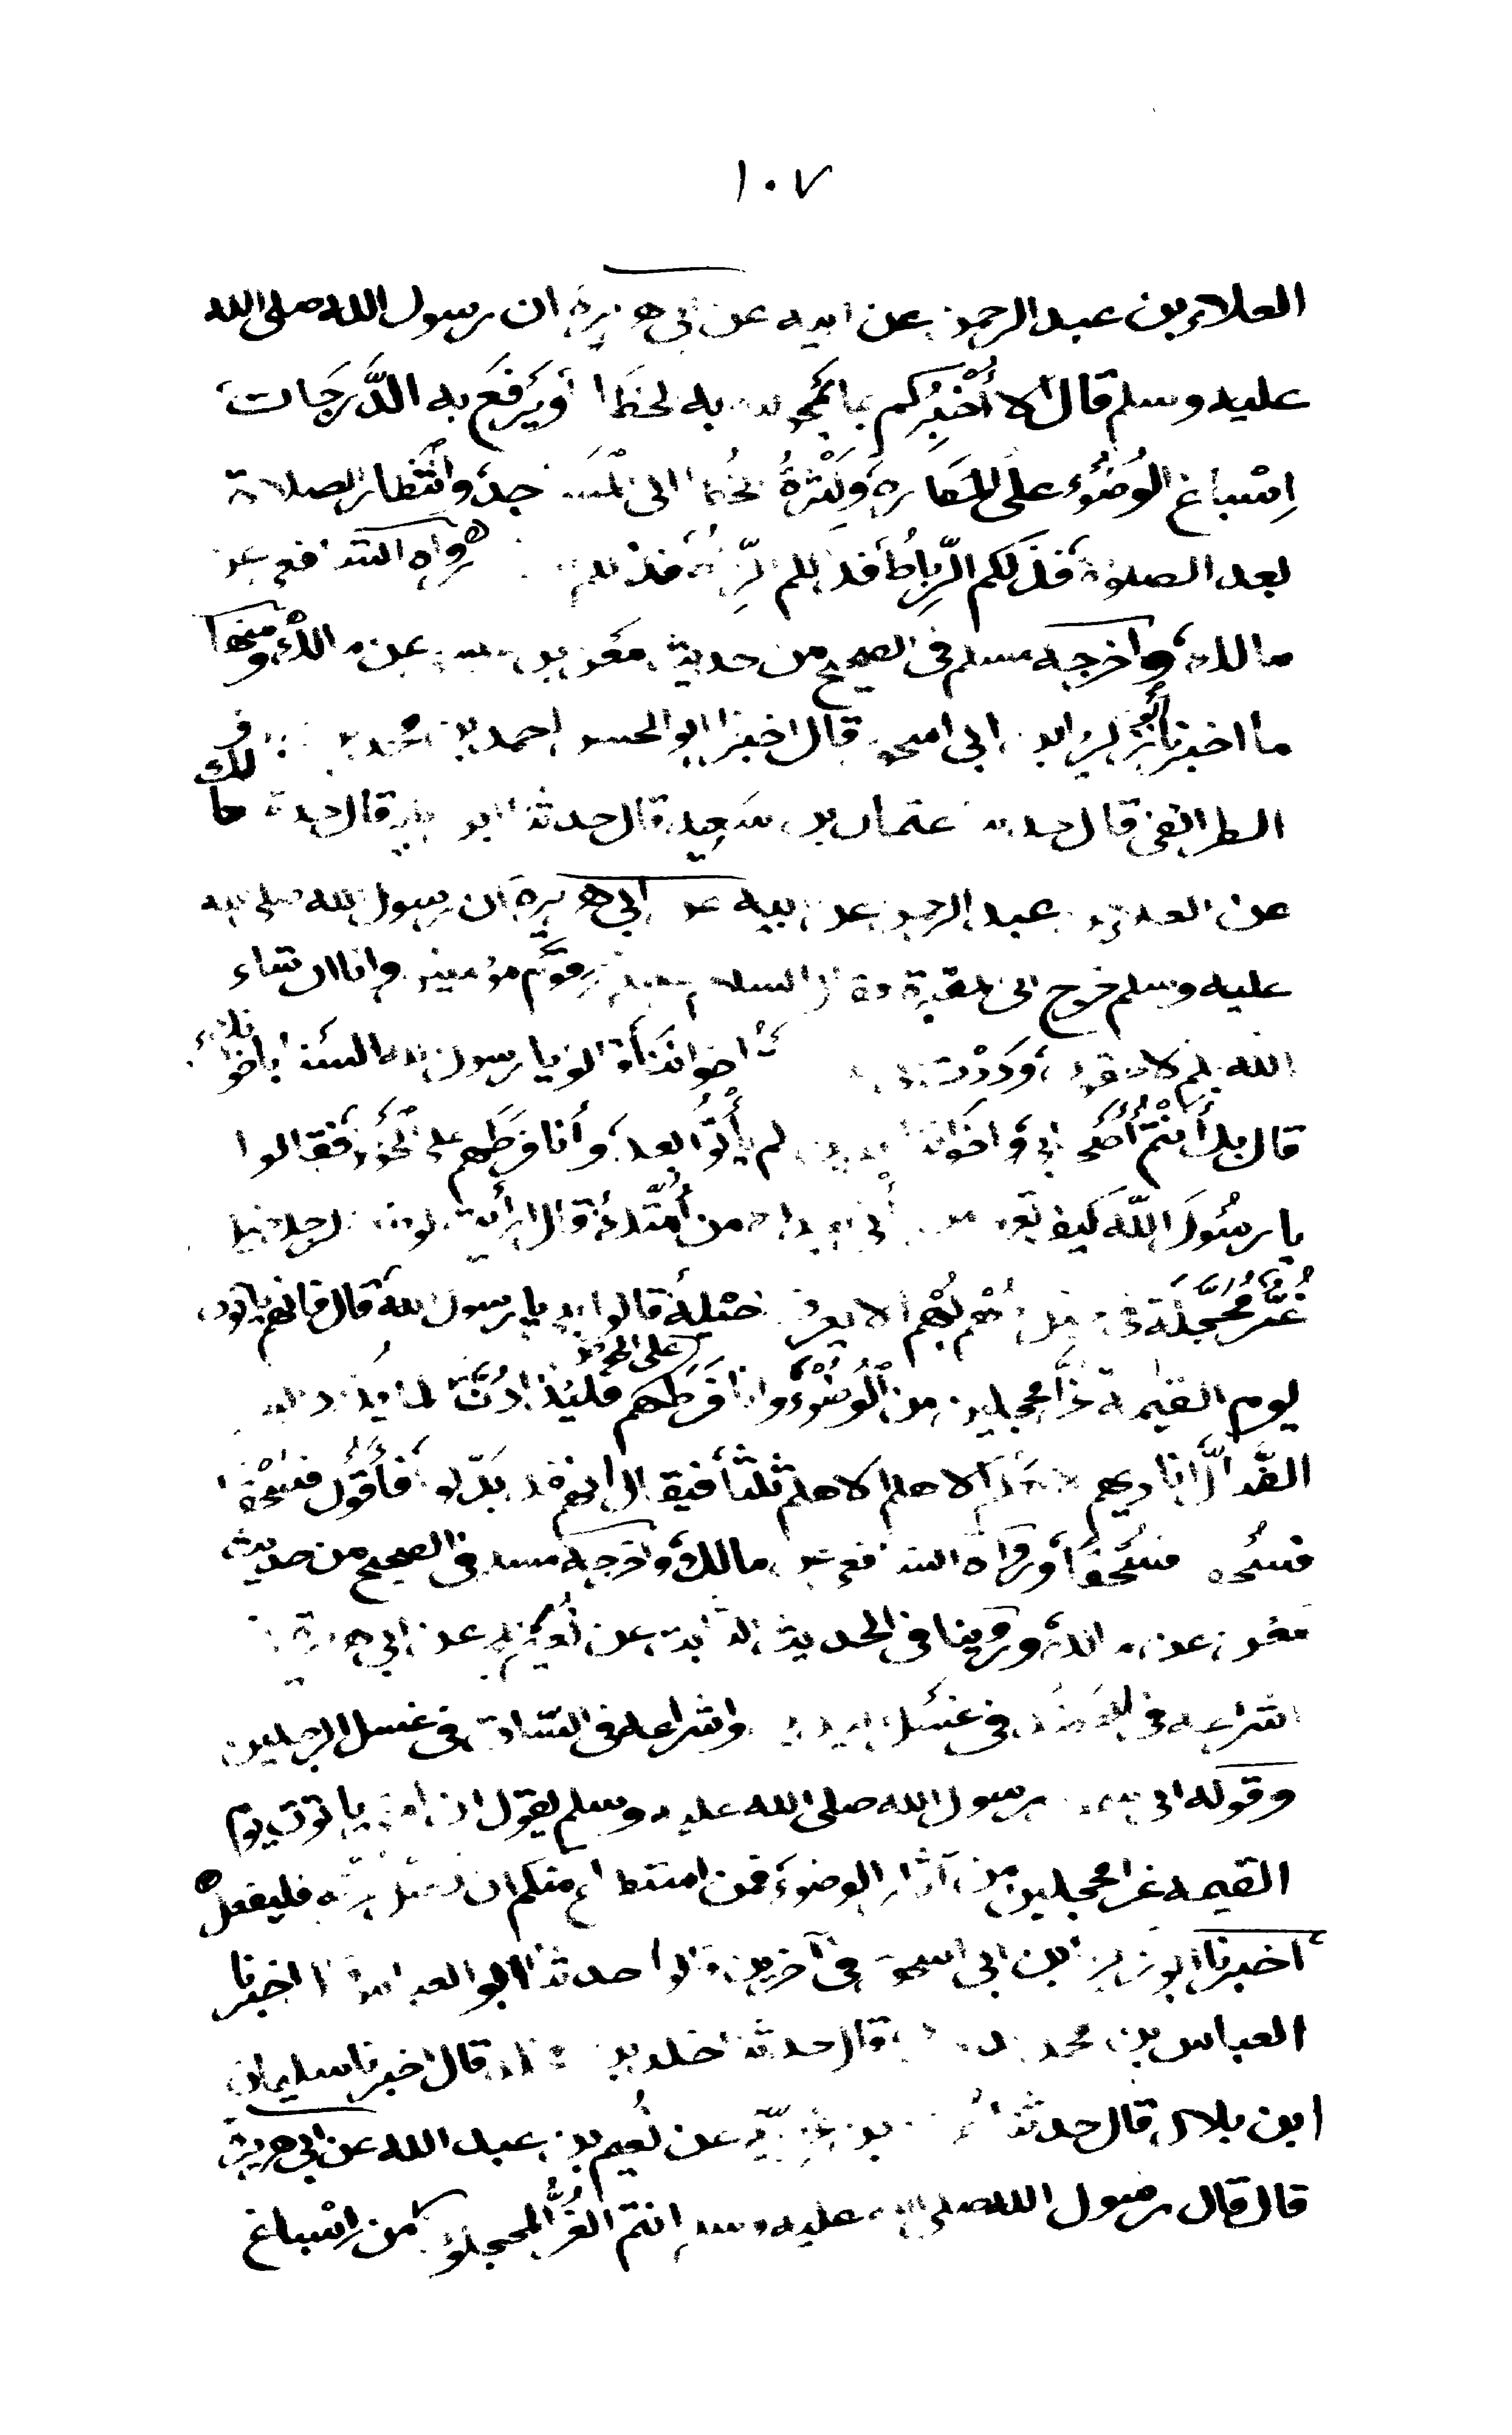 ١٠٧
العلاء بن عبد الرحمن عن ابيه عن ابى هريرة ان رسول الله صلى الله
عليه وسلم قال الا أُخْبِرُكم بما يمحو الله به الخطايا ويَرفَع به الدَّرَجَات
اِسْباغ الوُضُوء على المَكاره وكَثْرةُ الخُطا الى المَسَاجد وانْتظار الصلاة
بعد الصلوة فذلكم الرِّباطُ فذلكم الرِّباط فذلكم رواه الشافعي عن
مالك وأخرجه مسلم في الصحيح من حديث معن بن عيسى عن مالك ومنها
ما اخبرنا أبو زكريا بن ابى اسحق قال اخبرنا ابو الحسن احمد بن محمد
الطرائفى قال حدثنا عثمان بن سَعِيد قال حدثنا ابن بكير قال حدثنا مالك
عن العلاء بن عبد الرحمن عن ابيه عن ابي هريرة ان رسول الله صلى الله
عليه وسلم خرج الى المقبرة فقال السلام عليكم دار قوم مؤمنين وانا ان شاء
الله بكم لاحقون وَدَدْت اخواننا قالوا يا رسول الله السنا باخوانك
قال بل أَنْتُم أَصْحابي واخَواننا الذين لم يأْتُوا بعد وأَنا فرَطهم على الحَوْض فقالوا
يا رسُولَ الله كيف تعرف من يأتى بعدك من أُمَّتك قال أرأيت لو كان لرجل خيل
غُرٌّ مُحَجَّلَة في خيل دُهْم بُهْم الا يعرف خَيْله قالوا بلى يا رسول الله قال فانهم يأتون
يوم القيمة غُرًّا محجلين من الوُضُوْء وانا فَرَطهم على الحوض فليُذادَنَّ كما يذاد البعير
الضَّالُّ اناديهم الا هلم الا هلم الا هلم ثلثاً فيقال انهم قد بَدّلوا فأَقُول فسُحْقا
فسُحقا فسُحْقاً ورواه الشافعي عن مالك وأخرجه مسلم في الصحيح من حديث
معن عن مالك ورُوينا في الحديث الثابت عن نُعَيم عن ابي هريرة
اشراعه في العَضُد في غَسْل اليدين واشراعه في الساق في غسل الرجلين
وقوله انى سمعت رسول الله صلى الله عليه وسلم يقول ان امتى يأتون يوم
القيمة غرا محجلين من آثار الوضوء فمن استطاع منكم ان يطيل غرته فليفعل
أخبرنا ابو زكريا بن ابى اسحق في آخرين قالوا حدثنا ابو العباس اخبرنا
العباس بن محمد قال حدثنا خلد بن مخلد قال اخبرنا سليمان
ابن بلال قال حدثنا عُمارة بن غَزِيَّة عن نُعيم بن عبد الله عن ابى هريرة
قال قال رسول الله صلى الله عليه وسلم انتم الغُرُّ المحجلون من اِسْباغ